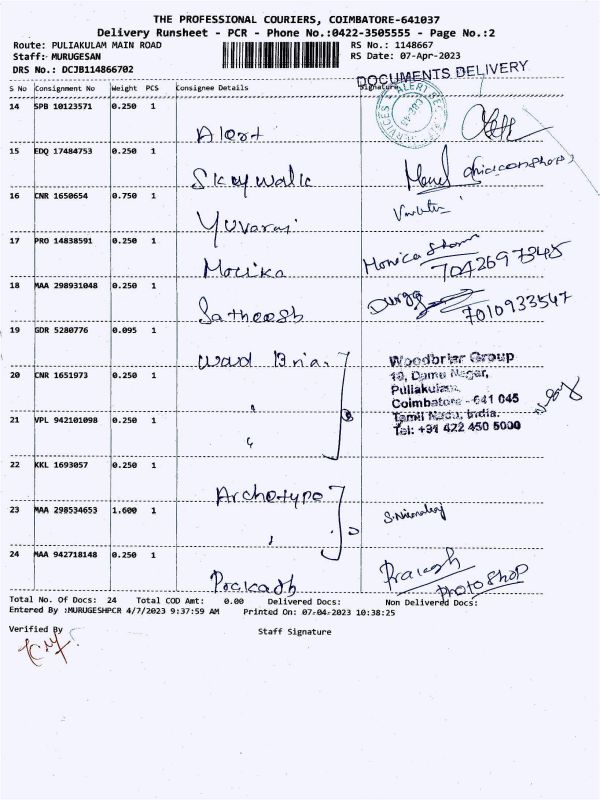 THE PROFESSIONAL COURIERS, COIMBATORE-641037
Delivery Runsheet - PCR - Phone No.:0422-3505555 - Page No.:2
Route: PULIAKULAM MAIN ROAD
RS No.: 1148667
Staff: MURUGESAN
RS Date: 07-Apr-2023
DRS No.: DCJB114866702
DOCUMENTS DELIVERY
S No Consignment No Weight PCS Consignee Details Signature
14 SPB 10123571 0.250 1
Alert
15 EDQ 17484753 0.250 1
Skaywalk
16 CNR 1650654 0.750 1
Yuvaraj
17 PRO 14838591 0.250 1
Monika Monica
7042697345
18 MAA 298931048 0.250 1
Satheesh Durga
7010933547
19 GDR 5280776 0.095 1
Woodbriar Group
20 CNR 1651973 0.250 1
Puliakulam,
Coimbatore - 641 045
21 VPL 942101098 0.250 1
Tamil Nadu, India.
Tel: +91 422 450 5000
22 KKL 1693057 0.250 1
Archetype
23 MAA 298534653 1.600 1
24 MAA 942718148 0.250 1
Prakash Prakash
Photoshop
Total No. Of Docs: 24 Total COD Amt: 0.00 Delivered Docs: Non Delivered Docs:
Entered By :MURUGESHPCR 4/7/2023 9:37:59 AM Printed On: 07-04-2023 10:38:25
Verified By
Staff Signature